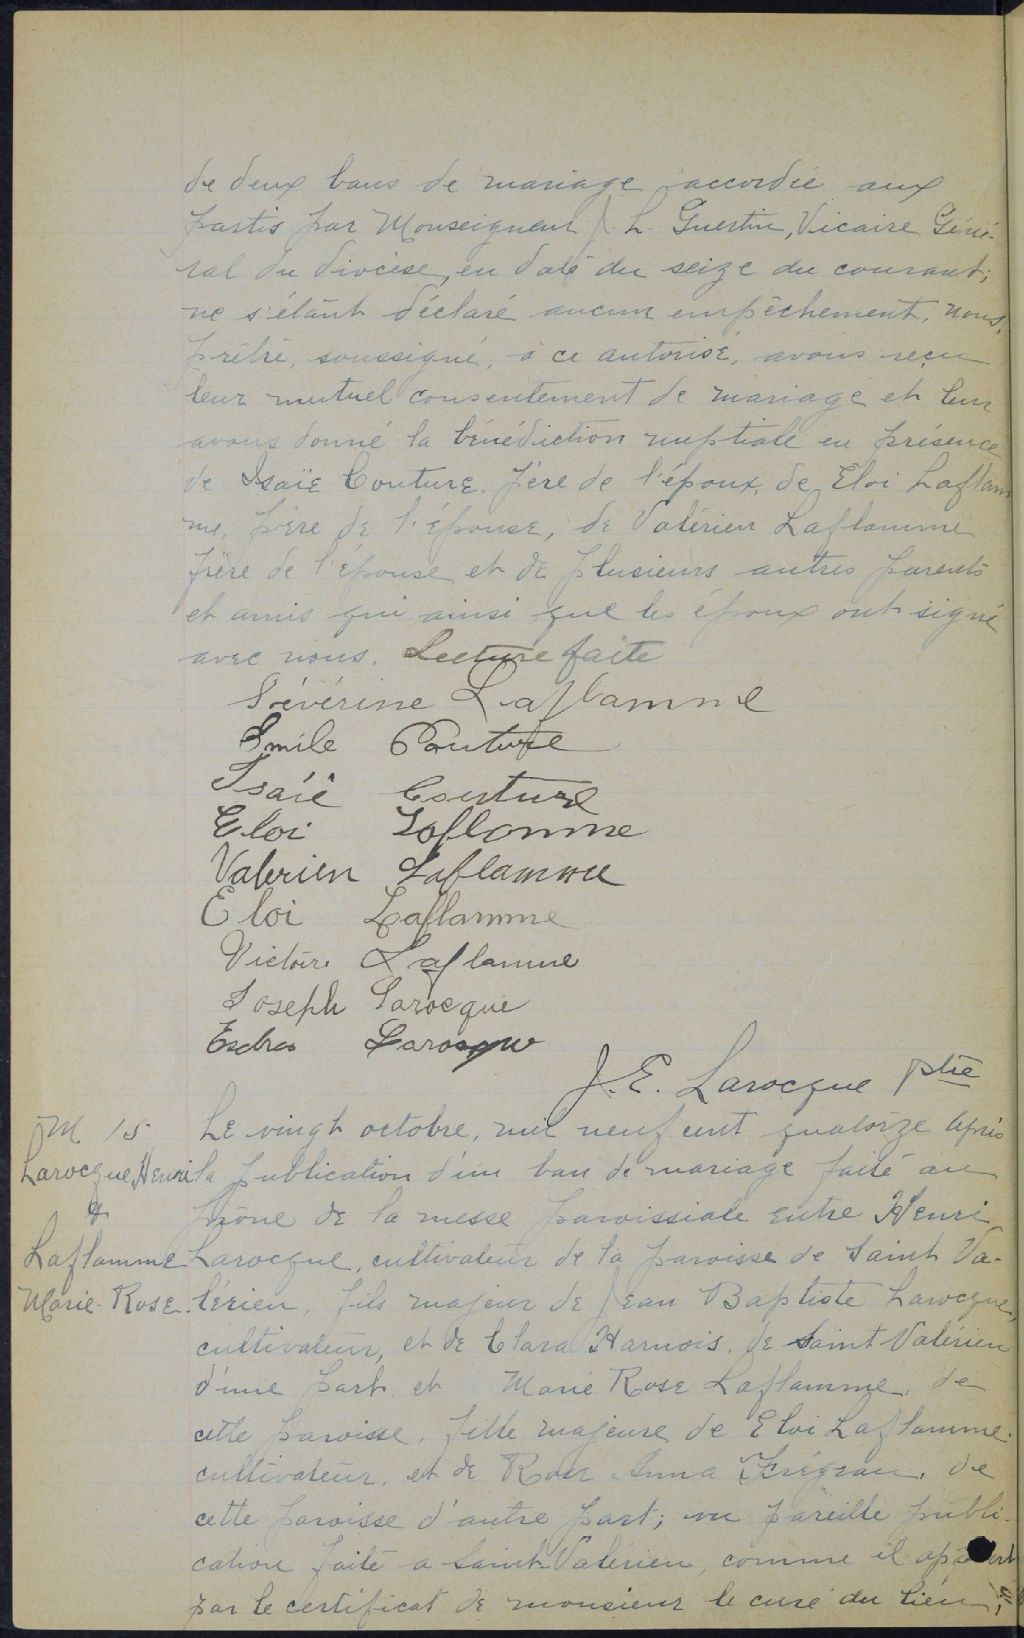 de deux bans de mariage accordée aux
partis par Monseigneur J. L. Guertin, Vicaire Géné-
ral du diocèse, en date du seize du courant;
ne s'étant déclaré aucun empêchement, nous,
prêtre, soussigné, à ce autorisé, avons reçu
leur mutuel consentement de mariage et leur
avons donné la bénédiction nuptiale en présence
de Isaïe Couture, père de l'époux, de Eloi Laflam
me, père de l'épouse, de Valérien Laflamme
frère de l'épouse et de plusieurs autres parents
et amis qui ainsi que les époux ont signé
avec nous. Lecture faite
Sévérine Laflamme
Emile Couture
Isaïe Couture
Eloi Laflamme
Valerien Laflamme
Eloi Laflamme
Victoire Laflamme
Joseph Larocque
Esdras Larocque
J. E. Larocque ptre
M 15
Larocque, Henri
&
Laflamme
Marie-Rose.
Le vingt octobre, mil neuf cent quatorze après
la publication d'un ban de mariage faite au
prône de la messe paroissiale entre Henri
Larocque, cultivateur de la paroisse de Saint Va-
lérien, fils majeur de Jean Baptiste Larocque,
cultivateur, et de Clara Harnois, de Saint Valérien
d'une part, et Marie Rose Laflamme, de
cette paroisse, fille majeure de Eloi Laflamme
cultivateur, et de Rose Anna Frégeau, de
cette paroisse d'autre part; vu pareille publi-
cation faite a Saint-Valérien, comme il appert
par le certificat de monsieur le curé du lieu,